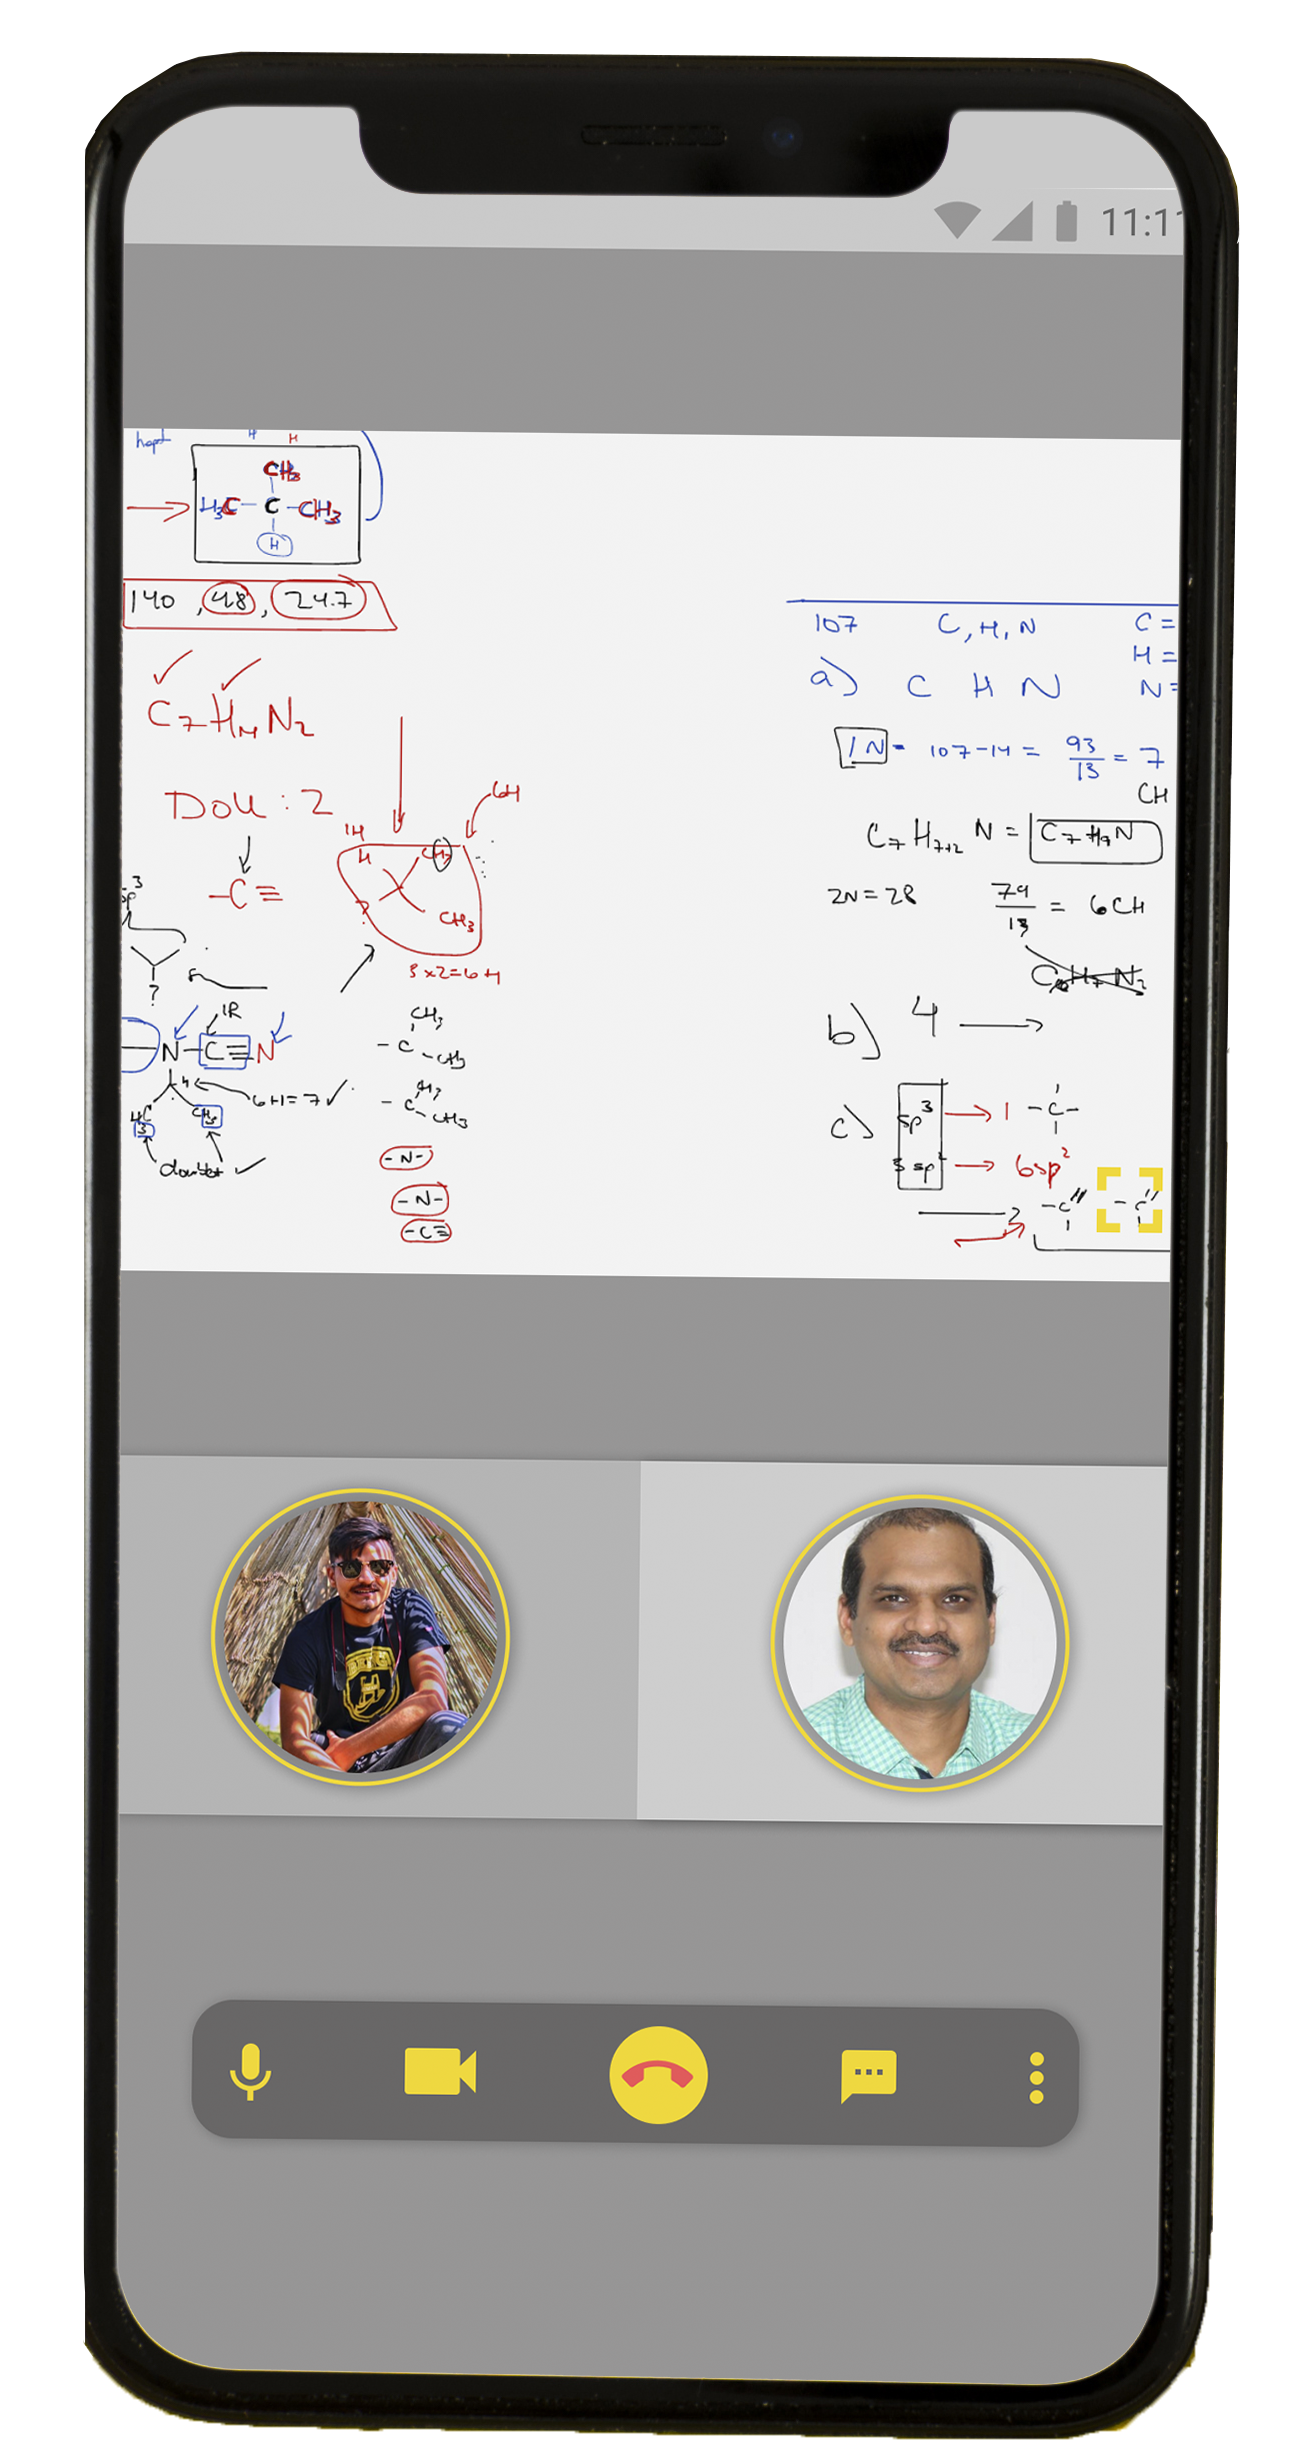 11:1
H H
CH3
H3C - C - CH3
H
140 , 48 , 24.7
C7H14N2
DoU : 2
-C≡
1H
6H
H
CH3
?
CH3
3x2=6H
sp3
?
IR
N-C≡N
6H=7 ✓
H3C
CH3
doublet ✓
CH3
-C-CH3
CH3
-C-CH3
-N-
-N-
-C≡
107 C, H, N C =
H =
a) C H N N =
1N = 107-14 = 93/13 = 7
CH
C7H7+2 N = C7H9N
2N=28 79/13 = 6CH
C6H7N2
b) 4 →
c) sp3 → 1 -C-
3 sp2 → 6sp2
-C= -C=